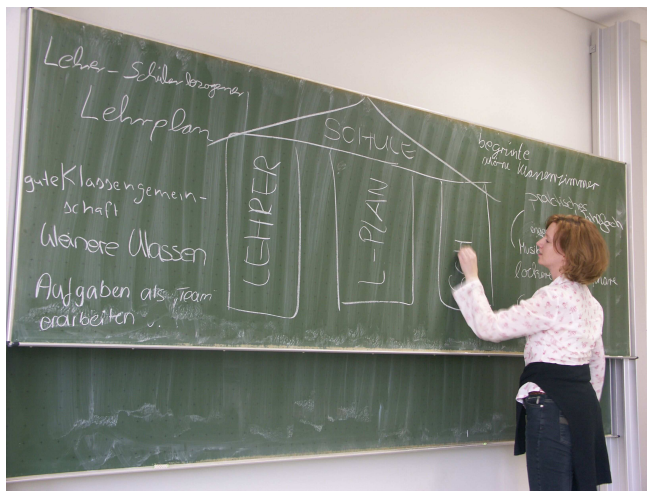 Lehrer-Schülerbezogener
Lehrplan
gute Klassengemein-
schaft
kleinere Klassen
Aufgaben als "Team"
erarbeiten
SCHULE
LEHRER
L-PLAN
begrünte
schöne Klassenzimmer
praktisches
Musik
lockere